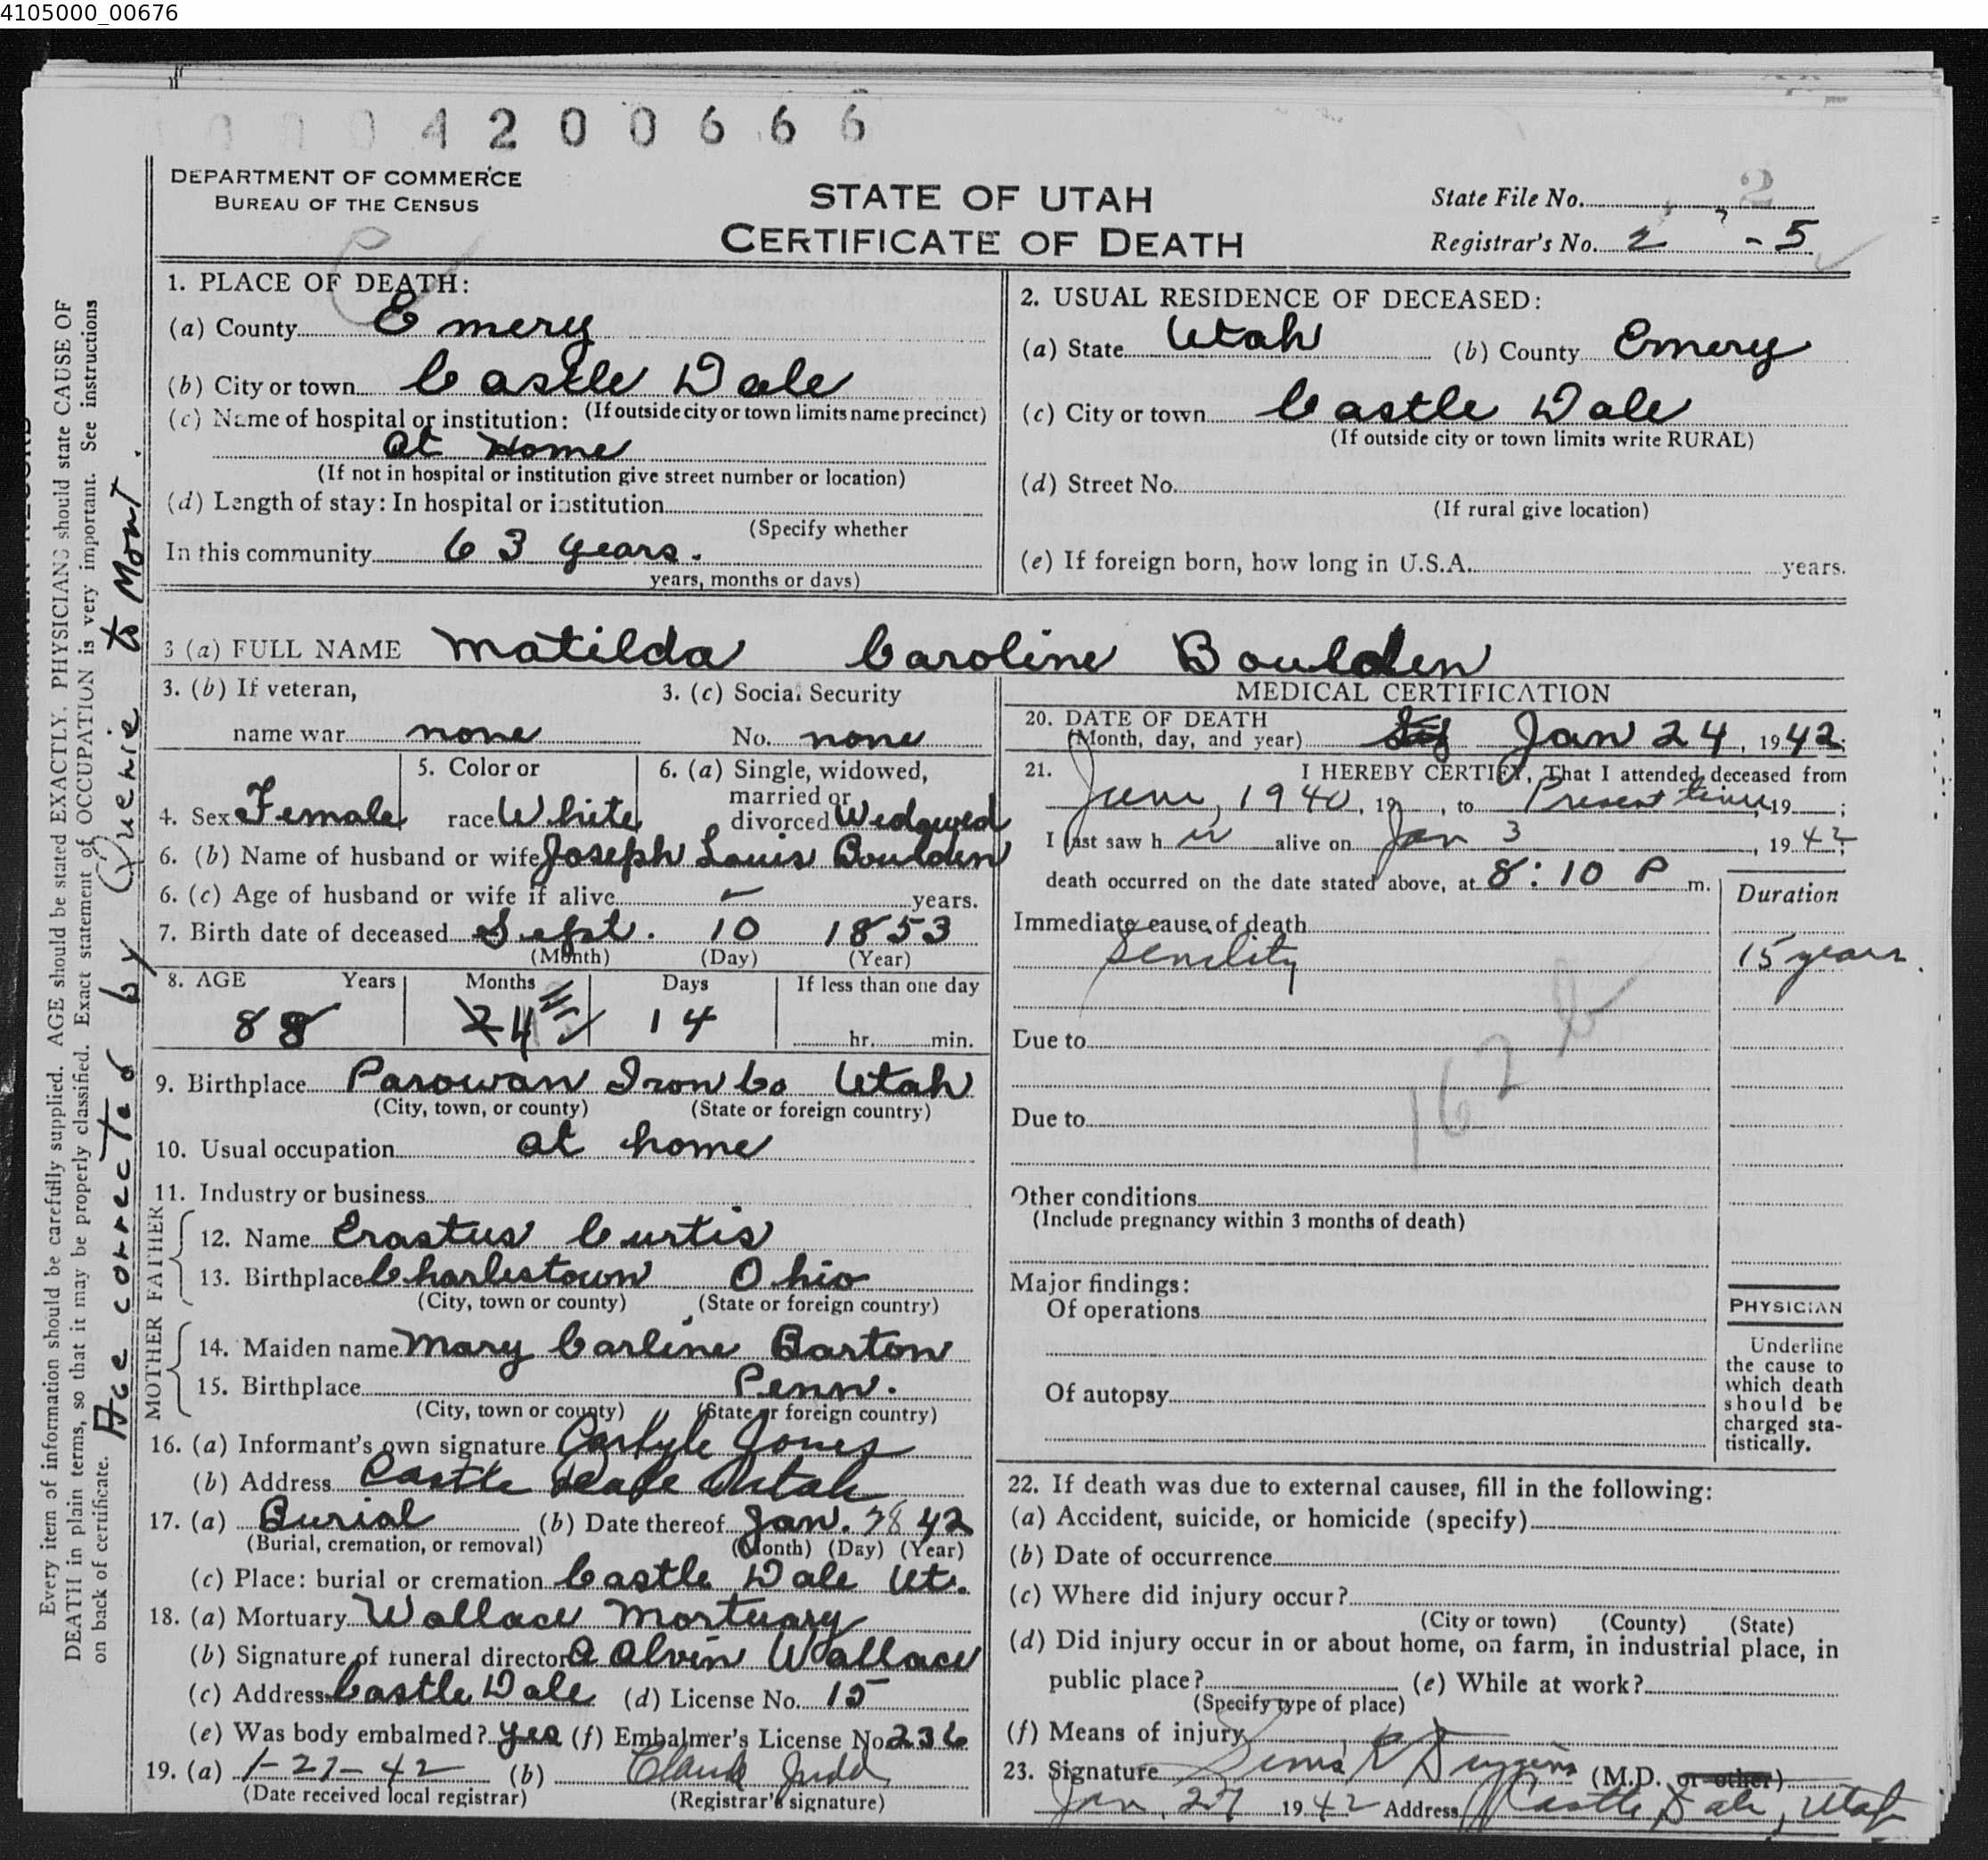 4105000_00676
4 2 0 0 6 6 6
DEPARTMENT OF COMMERCE
BUREAU OF THE CENSUS
STATE OF UTAH
CERTIFICATE OF DEATH
State File No. 2
Registrar's No. 2 - 5
1. PLACE OF DEATH:
(a) County Emery
(b) City or town Castle Dale
(c) Name of hospital or institution: (If outside city or town limits name precinct)
At Home
(If not in hospital or institution give street number or location)
(d) Length of stay: In hospital or institution
(Specify whether
In this community 63 years.
years, months or days)
2. USUAL RESIDENCE OF DECEASED:
(a) State Utah (b) County Emery
(c) City or town Castle Dale
(If outside city or town limits write RURAL)
(d) Street No.
(If rural give location)
(e) If foreign born, how long in U.S.A. years.
3 (a) FULL NAME Matilda Caroline Boulden
3. (b) If veteran, 3. (c) Social Security
name war none No. none
4. Sex Female 5. Color or race White 6. (a) Single, widowed, married or divorced Widowed
6. (b) Name of husband or wife Joseph Louis Boulden
6. (c) Age of husband or wife if alive - years.
7. Birth date of deceased Sept. 10 1853
(Month) (Day) (Year)
8. AGE Years Months Days If less than one day
88 4 14 hr. min.
9. Birthplace Parowan Iron Co Utah
(City, town, or county) (State or foreign country)
10. Usual occupation at home
11. Industry or business
FATHER
12. Name Erastus Curtis
13. Birthplace Charlestown Ohio
(City, town or county) (State or foreign country)
MOTHER
14. Maiden name Mary Carline Barton
15. Birthplace Penn.
(City, town or county) (State or foreign country)
16. (a) Informant's own signature Carlyle Jones
(b) Address Castle Dale Utah
17. (a) Burial (b) Date thereof Jan. 28 42
(Burial, cremation, or removal) (Month) (Day) (Year)
(c) Place: burial or cremation Castle Dale Ut.
18. (a) Mortuary Wallace Mortuary
(b) Signature of funeral director A Alvin Wallace
(c) Address Castle Dale (d) License No. 15
(e) Was body embalmed? Yes (f) Embalmer's License No 236
19. (a) 1-27-42 (b) Clark Judd
(Date received local registrar) (Registrar's signature)
MEDICAL CERTIFICATION
20. DATE OF DEATH
(Month, day, and year) Jan 24, 1942;
21. I HEREBY CERTIFY, That I attended deceased from
June, 1940, 19 , to Present time, 19 ;
I last saw h er alive on Jan 3, 1942;
death occurred on the date stated above, at 8:10 P m.
Duration
Immediate cause of death
Senility 15 years.
Due to
162 b
Due to
Other conditions
(Include pregnancy within 3 months of death)
Major findings:
Of operations
Of autopsy
PHYSICIAN
Underline
the cause to
which death
should be
charged sta-
tistically.
22. If death was due to external causes, fill in the following:
(a) Accident, suicide, or homicide (specify)
(b) Date of occurrence
(c) Where did injury occur?
(City or town) (County) (State)
(d) Did injury occur in or about home, on farm, in industrial place, in
public place? (e) While at work?
(Specify type of place)
(f) Means of injury
23. Signature Duggins (M.D. or other)
Jan. 27 1942 Address Castle Dale, Utah
Every item of information should be carefully supplied. AGE should be stated EXACTLY. PHYSICIANS should state CAUSE OF
DEATH in plain terms, so that it may be properly classified. Exact statement of OCCUPATION is very important. See instructions
on back of certificate.
Age corrected by Queenie to Mont.